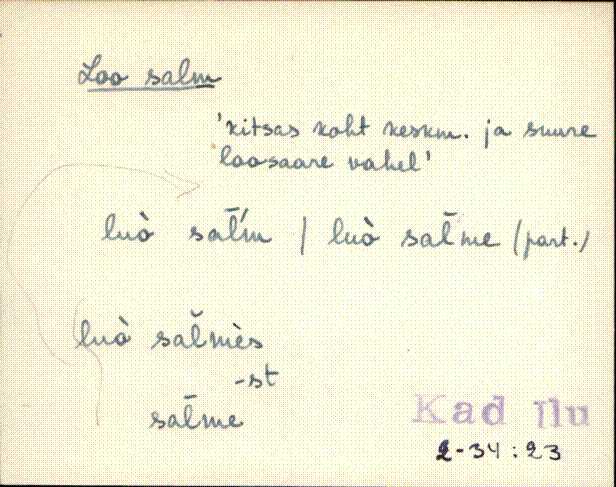 Loo salm
'kitsas koht keskm. ja suure
loosaare vahel'
luò sal̄'m | luò sal̄me (part.)
luò sal̆mès
-st
sal̄me
Kad Ilu
2-34:23